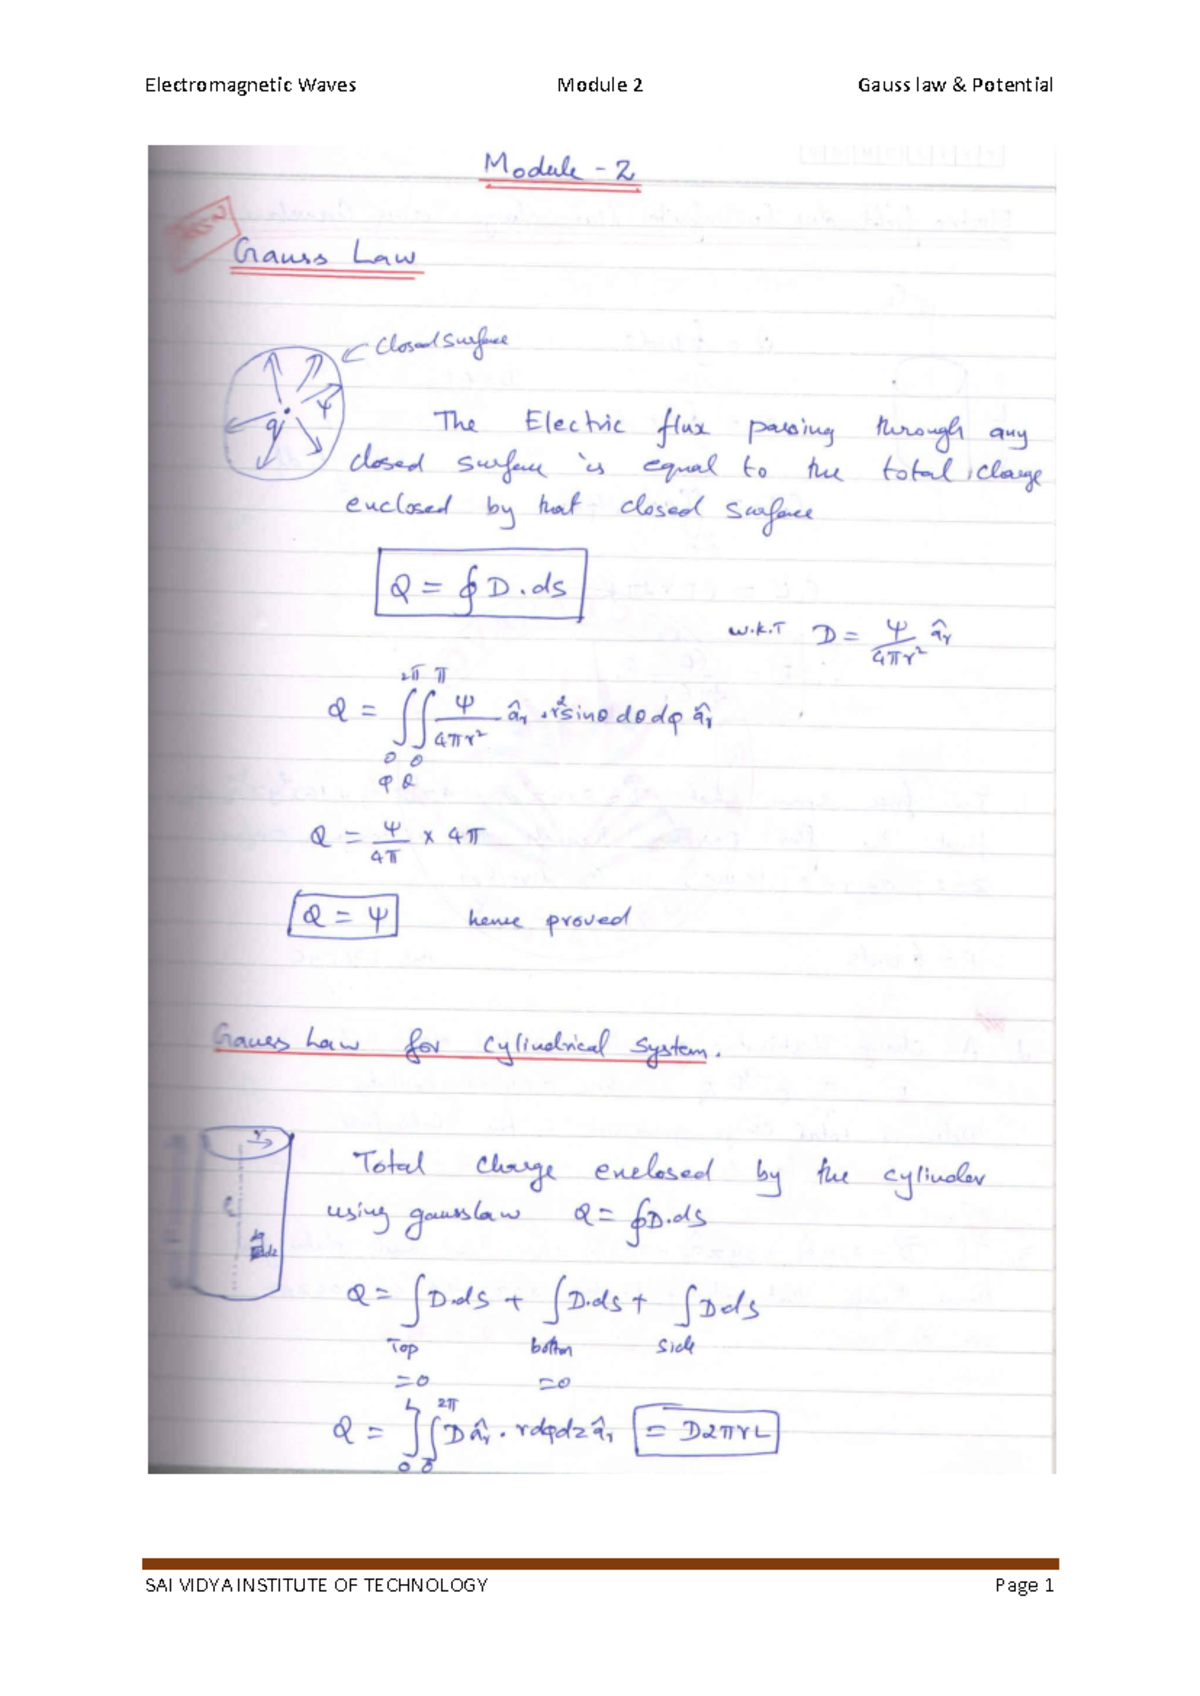 Electromagnetic Waves Module 2 Gauss law & Potential
Module - 2
Gauss Law
closed surface
ψ
q
The Electric flux passing through any
closed surface is equal to the total charge
enclosed by that closed surface
Q = ∮ D . ds
w.k.T D = ψ/4πr² âr
Q = ∫₀^2π ∫₀^π ψ/4πr² âr . r² sinθ dθ dφ âr
φ θ
Q = ψ/4π × 4π
Q = ψ hence proved
Gauss Law for cylindrical system.
r
Total charge enclosed by the cylinder
using gauss law Q = ∮D.ds
Q = ∫D.ds + ∫D.ds + ∫Dds
Top bottom side
=0 =0
Q = ∫₀^L ∫₀^2π D âr . rdφdz âr = D2πrL
SAI VIDYA INSTITUTE OF TECHNOLOGY Page 1